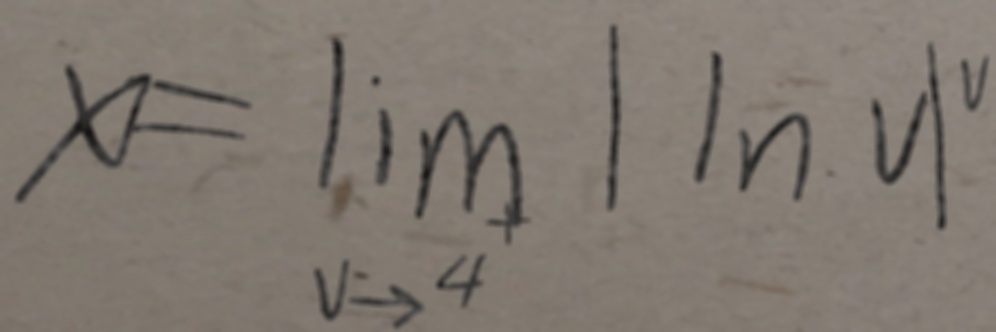 x = lim_{v→4^+} |ln v|^v